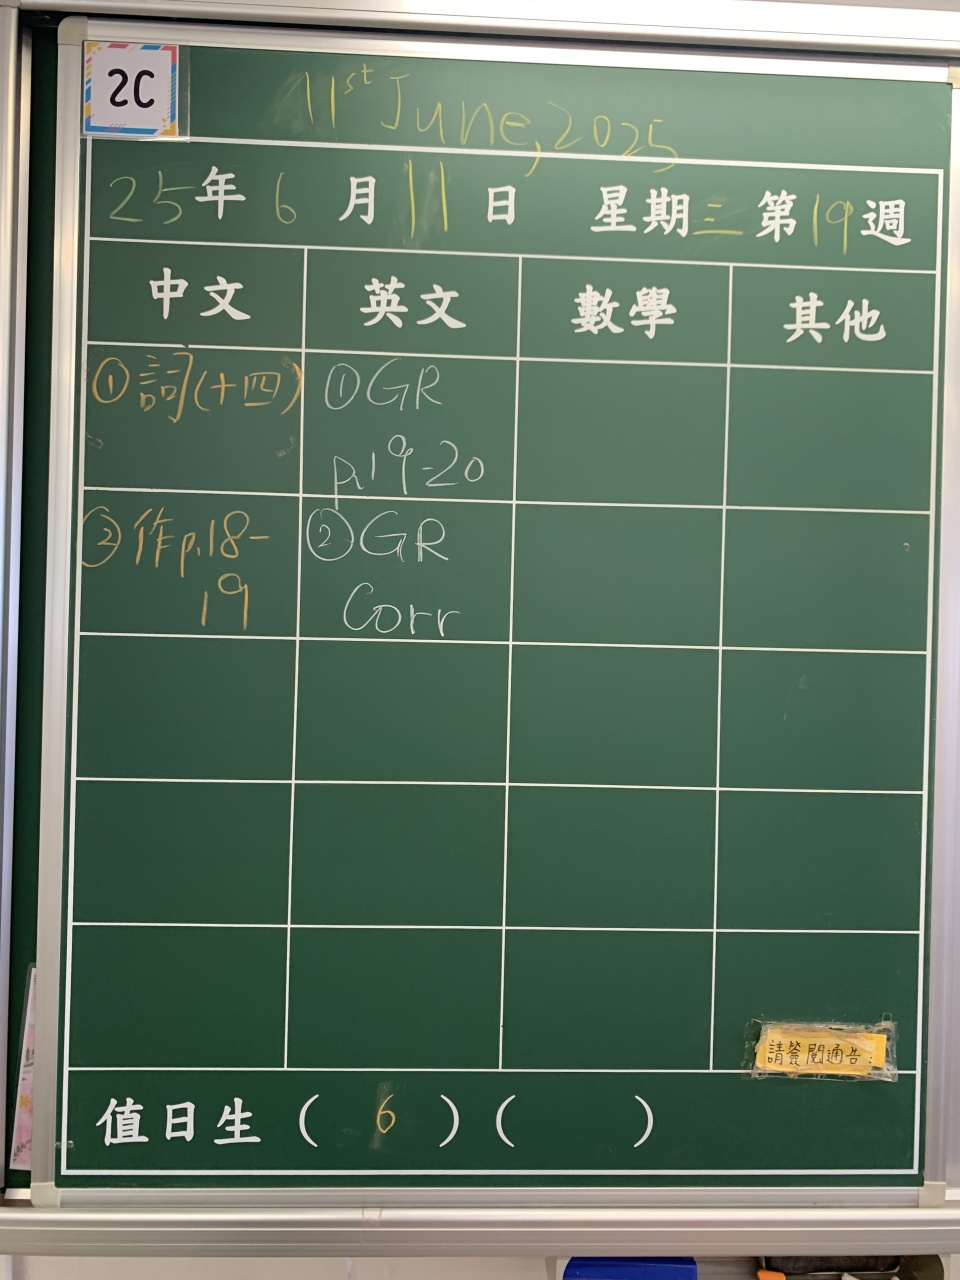 2C
11st June, 2025
25年6月11日 星期三 第19週
中文 英文 數學 其他
①詞(十四) ①GR
p.19-20
②作p.18- ②GR
19 Corr
請簽閱通告:
值日生 ( 6 ) ( )